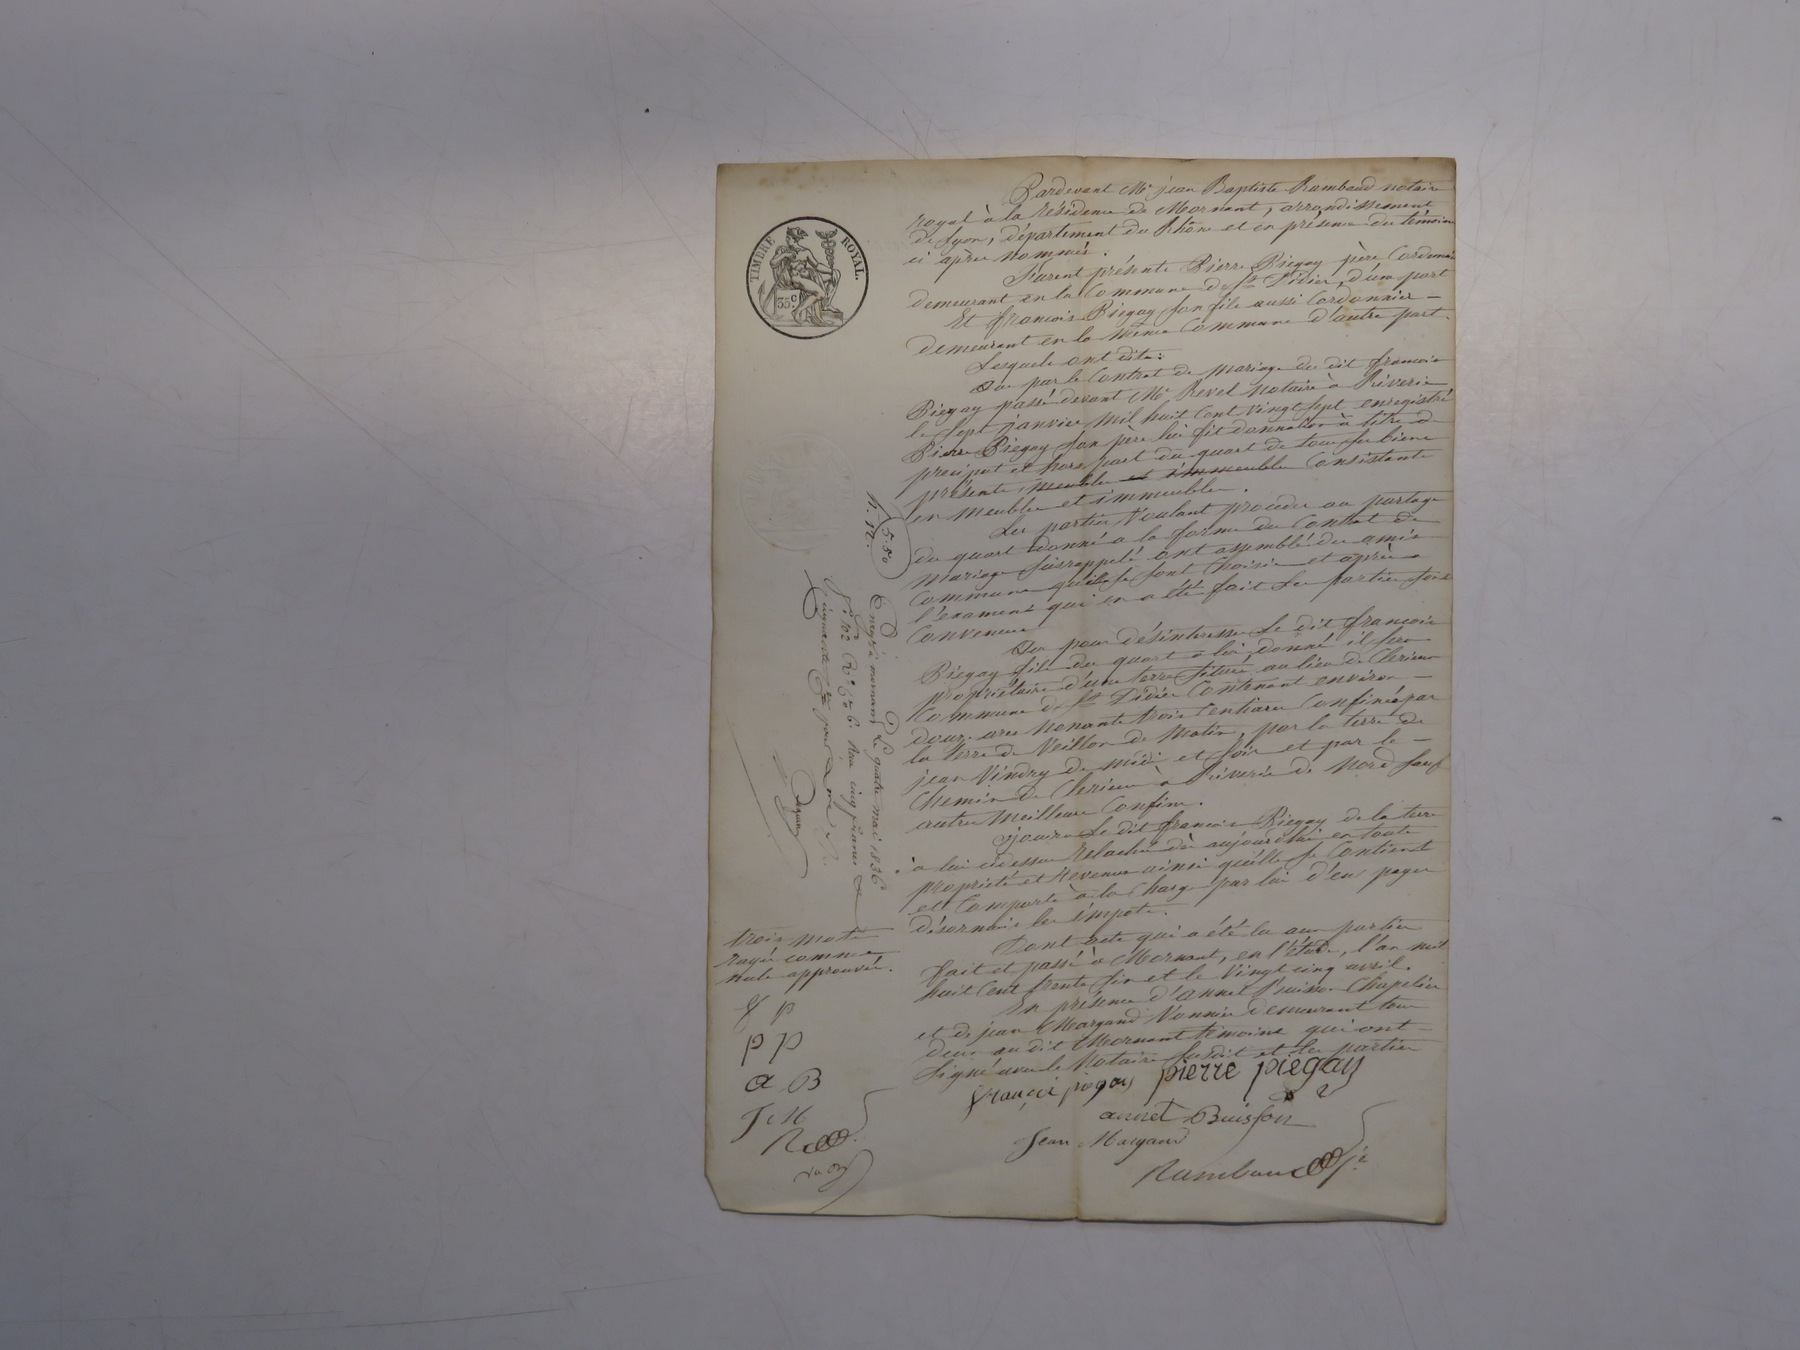 TIMBRE ROYAL.
35 c
Pardevant Me jean Baptiste Rambaud notaire
royal à la résidence de Mornant, arrondissement
de Lyon, département du Rhône et en présence des témoins
ci après nommés.
Furent présents Pierre Piégay père Cordonnier
demeurant en la Commune de St Didier, d'une part
Et françois Piégay son fils aussi Cordonnier —
demeurant en la même Commune d'autre part.
Lesquels ont dits:
Que par le Contrat de mariage du dit françois
Piégay passé devant Me Revel Notaire à Riverie
le sept janvier mil huit cent vingt sept enregistré
Pierre Piégay son père lui fit donnation à titre de
préciput et hors part du quart de tous ses biens
présents meubles et immeubles Consistants
en meubles et immeubles.
Les parties Voulant procéder au partage
du quart donné a la forme du Contrat de
mariage susrappelé ont assemblé des amis
Communs qu'ils se sont Choisis et après
l'examens qui en a été fait les parties sont
Convenues
Que pour désintéresser le dit françois
Piégay fils du quart à lui donné il sera
propriétaire d'une terre située au lieu de Clérieux
Commune de St Didier Contenant environ —
douze ares nonante trois Centiares Confinée par
la terre de Veillon de matin, par la terre de
jean Vindry de midi et soir et par le —
Chemin de Clérieux à Riverie de Nord sauf
autres Meilleurs Confins.
jouira le dit françois Piégay de la terre
à lui cidessus relachée dès aujourd'hui en toute
propriété et revenus ainsi qu'elle se Contient
et Comporte à la Charge par lui d'en payer
désormais les impots.
Dont acte qui a été lu aux parties
fait et passé à Mornant, en l'étude, l'an mil
huit Cent trente six et le Vingt cinq avril.
En présence d'annet Buisson Chapelier
et de jean Margand Vannier demeurant tous
deux au dit Mornant témoins qui ont —
signé avec le Notaire susdit et les parties
françois piegay pierre piégay
annet Buisson
Jean Margand
Rambaud
5.50
Enregé à mornant le quatre mai 1836
fo 102 Ro Ces 6 Reçu cinq francs et
cinquante centes pour
trois mots
rayés comme
nuls approuvés.
f p
p p
a B
J M
R